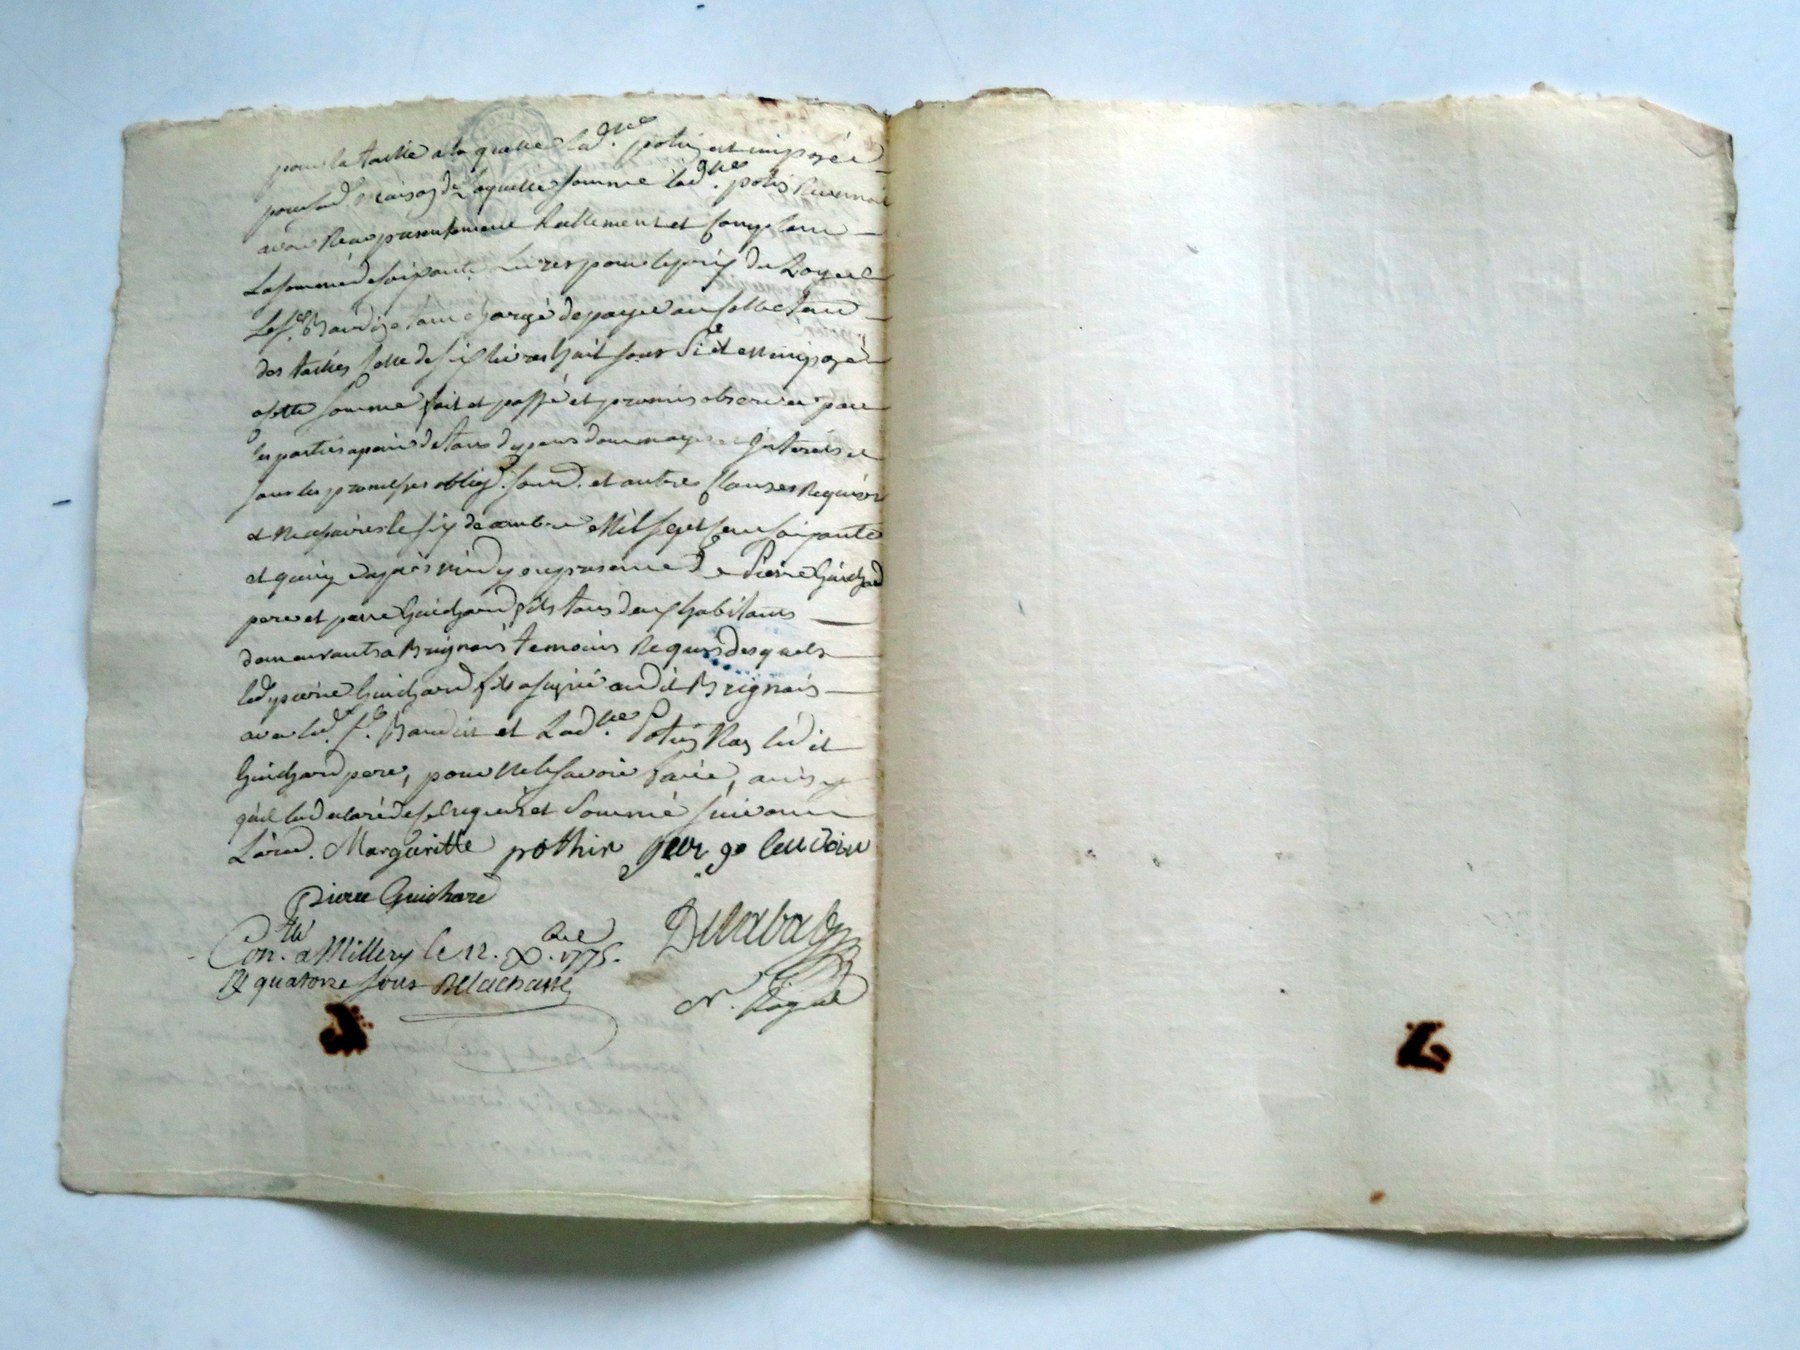 pour la taille a laquelle lad.que potin est imposée
pour lad maison de laquelle somme lad.que potin
avoir Reçu presentement Reellement et comptant
La somme de soixante Livres pour le prix du Loyer
Le sr Baudin étant chargé de payer au collecteur
des tailles celle de six livres huit sous
a cette somme fait et passé et promis observer par
les parties a peine de tous depens dommages Intérêts et
sous les promesses oblig.on soum.on et autres clauses Requises
et Necessaires le six decembre Mil sept cent soixante
et quinze après midy en presence de Pierre Guichard
pere et pierre Guichard fils tous deux habitans
demeurants a Brignais temoins Requis desquels
led pierre Guichard fils a signé audit Brignais
avec led. sr. Baudin et Lad.que Potin Non ledit
Guichard pere, pour ne le savoir faire, ainsy
qu'il la declaré de ce enquis et sommé suivant
L'ord. Margueritte pothin
Pierre Guichard
Con.tlé a Millery le 12. Xbre. 1775.
R quatorze sous Delachasse